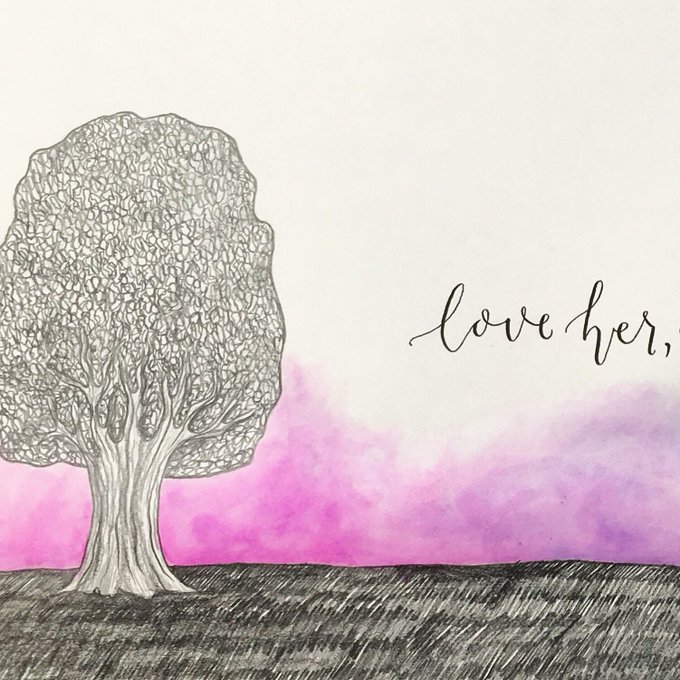 love her,